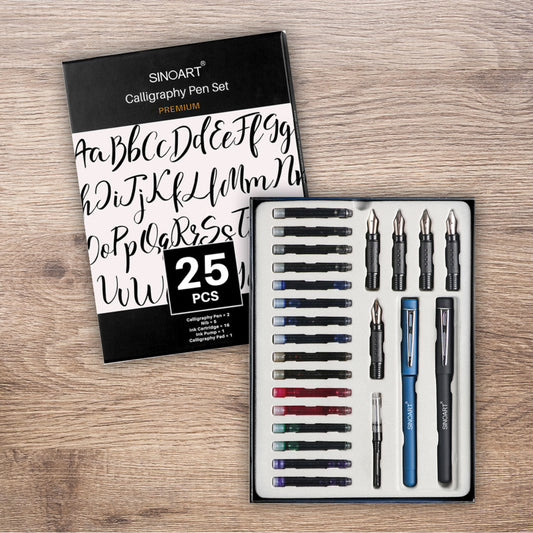 SINOART®
Calligraphy Pen Set
PREMIUM
Aa Bb Cc Dd Ee Ff Gg
Hh Ii Jj Kk Ll Mm Nn
Oo Pp Qq Rr Ss
Uu Vv Ww
25
PCS
Calligraphy Pen × 2
Nib × 5
Ink Cartridge × 16
Ink Pump × 1
Calligraphy Pad × 1
SINOART®
SINOART®